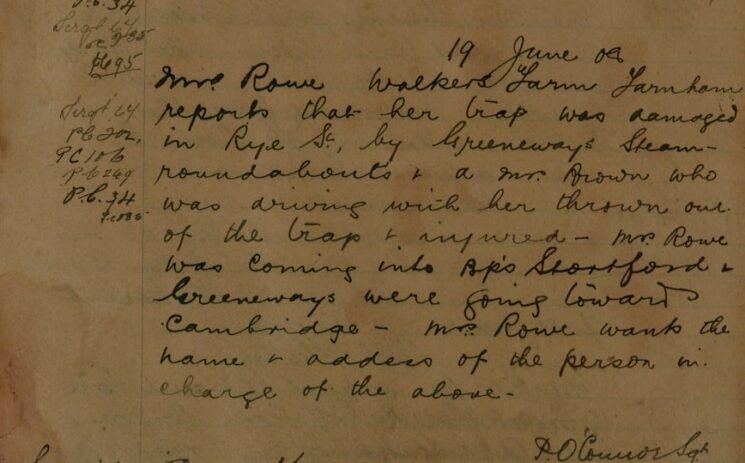 P.C. 34
Sergt 64
PC 95
19 June 08
Mrs Rowe Walkers Farm Farnham
reports that her trap was damaged
in Rye St, by Greeneways Steam-
roundabouts & a Mr. Brown who
was driving with her thrown out
of the trap & injured - Mrs Rowe
was coming into Bp's Stortford &
Greeneways were going towards
Cambridge - Mrs Rowe wants the
name & address of the person in
charge of the above -
Sergt 64
PC 202,
PC 106
PC 249
P.C. 34
P. O'Connor Sgt